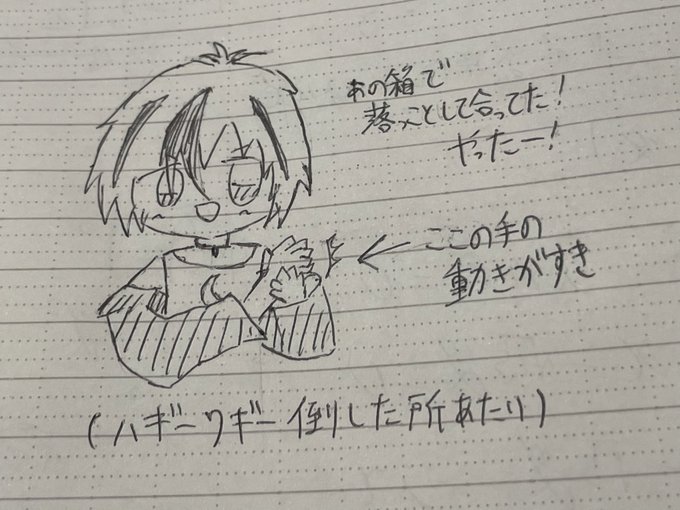 あの箱で
落ことして合ってた!
やったー!
ここの手の
動きがすき
(ハギーワギー倒した所あたり)